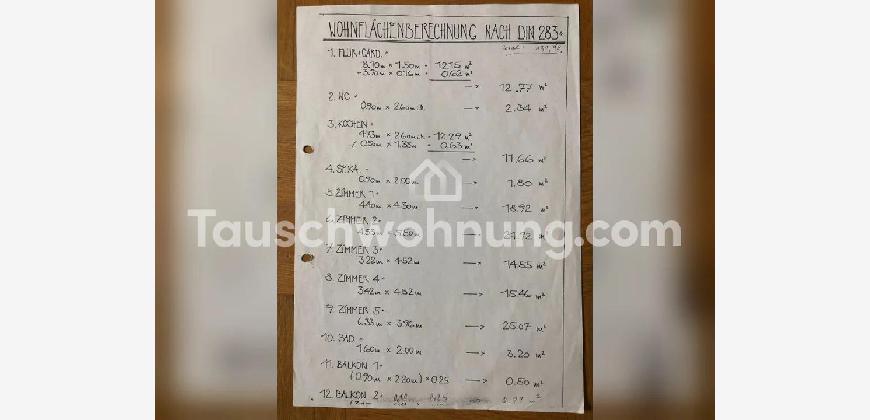 WOHNFLÄCHENBERECHNUNG NACH DIN 283.
1. FLUR+GARD. =
8.10m × 1.50m = 12.15 m²
= 0.62 m²
→ 12.77 m²
2. WC =
0.90m × 2.60m → 2.34 m²
3. KOCHEN =
4.73m × 2.60m = 12.29 m²
= 0.63 m²
→ 11.66 m²
4.
0.90m × 2.00m → 1.80 m²
5. ZIMMER 1 =
4.40m × 4.30m → 18.92 m²
6. ZIMMER 2 =
m²
7. ZIMMER 3 =
3.22m × 4.52m → 14.55 m²
8. ZIMMER 4 =
3.42m × 4.52m → 15.46 m²
9. ZIMMER 5 =
6.33m × 3.96m → 25.07 m²
10. BAD =
1.60m × 2.00m → 3.20 m²
11. BALKON 1 =
(0.90m × 2.20m) × 0.25 → 0.50 m²
12. BALKON 2 =
Tauschwohnung.com